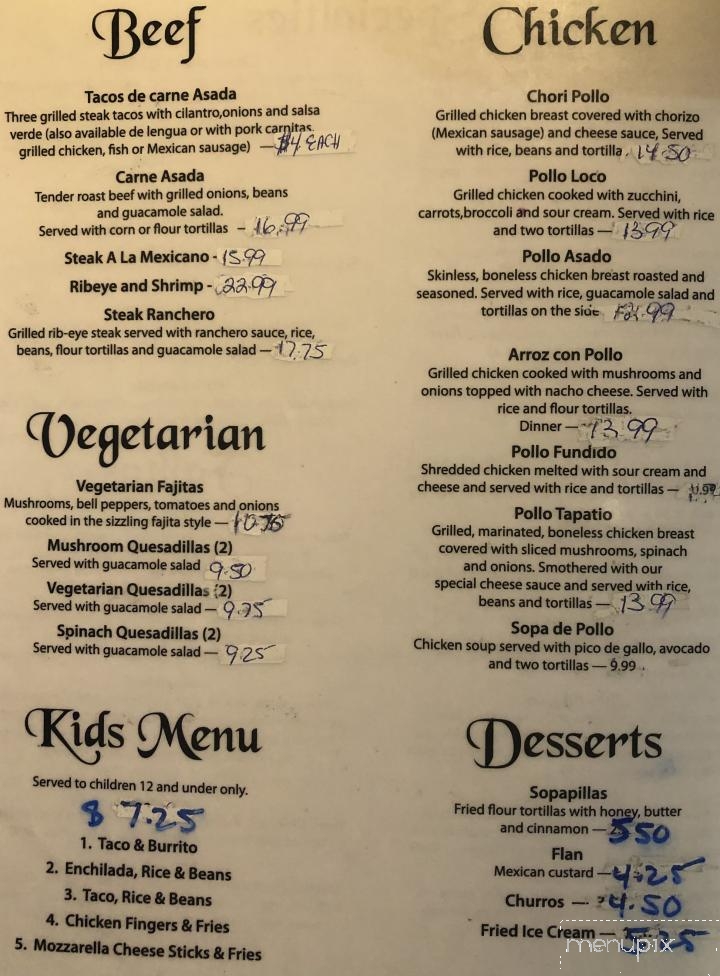 Beef
Tacos de carne Asada
Three grilled steak tacos with cilantro,onions and salsa
verde (also available de lengua or with pork carnitas,
grilled chicken, fish or Mexican sausage) — $4 EACH
Carne Asada
Tender roast beef with grilled onions, beans
and guacamole salad.
Served with corn or flour tortillas – 16.99
Steak A La Mexicano - 15.99
Ribeye and Shrimp - 22.99
Steak Ranchero
Grilled rib-eye steak served with ranchero sauce, rice,
beans, flour tortillas and guacamole salad — 17.75
Vegetarian
Vegetarian Fajitas
Mushrooms, bell peppers, tomatoes and onions
cooked in the sizzling fajita style —
Mushroom Quesadillas (2)
Served with guacamole salad 9.50
Vegetarian Quesadillas (2)
Served with guacamole salad — 9.75
Spinach Quesadillas (2)
Served with guacamole salad — 9.25
Kids Menu
Served to children 12 and under only.
$ 7.25
1. Taco & Burrito
2. Enchilada, Rice & Beans
3. Taco, Rice & Beans
4. Chicken Fingers & Fries
5. Mozzarella Cheese Sticks & Fries
Chicken
Chori Pollo
Grilled chicken breast covered with chorizo
(Mexican sausage) and cheese sauce, Served
with rice, beans and tortilla. 14.50
Pollo Loco
Grilled chicken cooked with zucchini,
carrots,broccoli and sour cream. Served with rice
and two tortillas — 13.99
Pollo Asado
Skinless, boneless chicken breast roasted and
seasoned. Served with rice, guacamole salad and
tortillas on the side
Arroz con Pollo
Grilled chicken cooked with mushrooms and
onions topped with nacho cheese. Served with
rice and flour tortillas.
Dinner — 13.99
Pollo Fundido
Shredded chicken melted with sour cream and
cheese and served with rice and tortillas — 11.99
Pollo Tapatio
Grilled, marinated, boneless chicken breast
covered with sliced mushrooms, spinach
and onions. Smothered with our
special cheese sauce and served with rice,
beans and tortillas — 13.99
Sopa de Pollo
Chicken soup served with pico de gallo, avocado
and two tortillas — 9.99
Desserts
Sopapillas
Fried flour tortillas with honey, butter
and cinnamon — 5.50
Flan
Mexican custard — 4.25
Churros — 4.50
Fried Ice Cream — 5.25
menupix